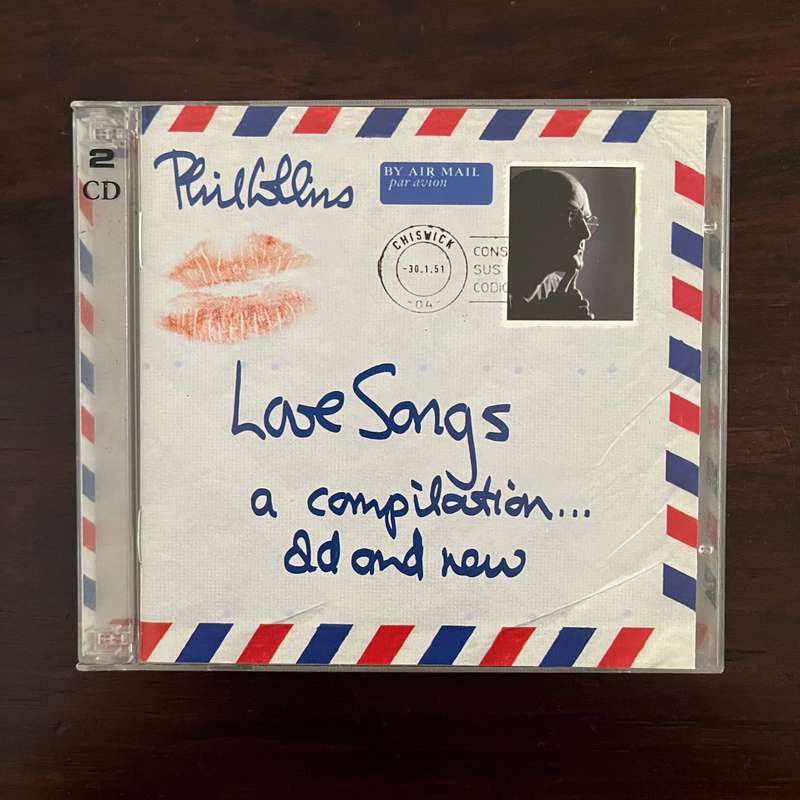 2
CD
Phil Collins
BY AIR MAIL
par avion
CHISWICK
-30.1.51
-04-
CONS
SUS
CODIC
Love Songs
a compilation...
old and new